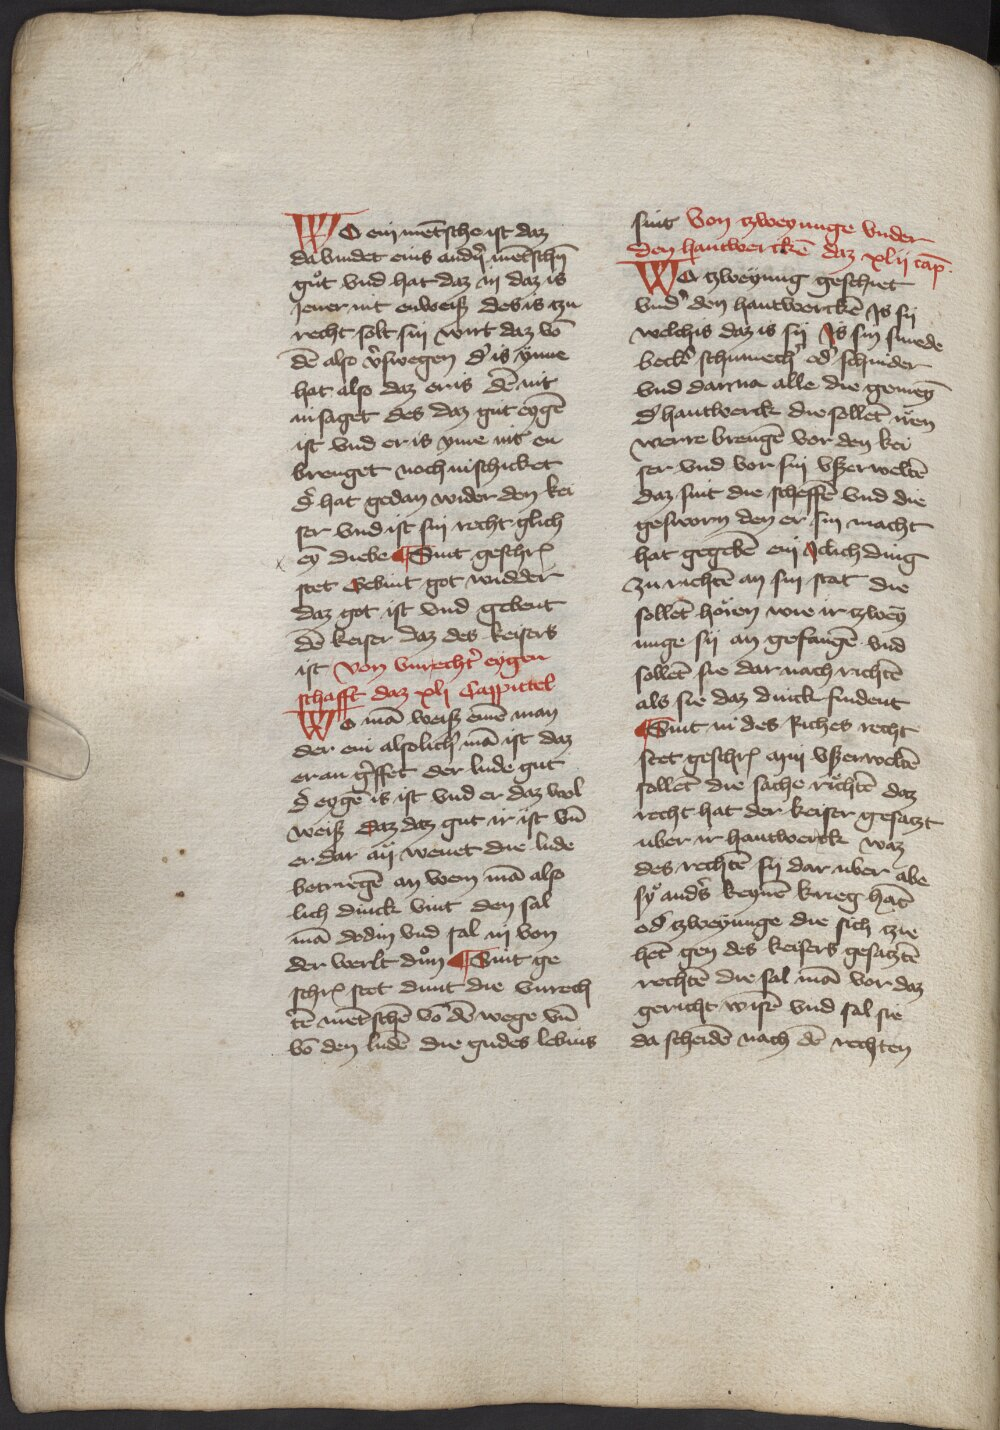 WO ein mētsche ist daz
da vindet eins andˢn mētschn̄
gůt vnd hat daz in daz is
Jener nit enweiß des is tzu
recht solt sin wirt daz vō
dē also v̾swegen d̾ is ynne
hat also daz er is dē nit
in saget des daz gut eygē
ist vnd er is yme nit en
brenget noch in schicket
d̾ hat gedan wider den kei
ser vnd ist sin recht glich
ey̅ diebe ¶ Sint geschrꝭ
stet Gebint got widder
daz got ist vnd gebent
dē keiser daz des keisers
ist von vnrecht̾ eygen
schafft daz xlj Cappittel
WO mā weiß einē man
der ein alsolich mā ist daz
er an g̾ffet der lude gut
d̾ eygē is ist vnd er daz wol
weiß daz daz gut ir ist vn̄
er dar an wenet die lude
betriegē an wem mā also
lich dinck vint den sal
mā dodin vnd sal in von
der werlt důn ¶ Sint ge
schrꝭ stet dunt die vnrech
tē mētschē vō dē wege vn̄
vō den ludē die gudes lebins
sint Von tzweyunge vnder
den hantwerckē daz xlij cap̅.
WO tzweyung geschiet
vnd̾ den hantwerckē Js sij
welchis daz is sij Js sin smede
beck̾ schumech̾ od̾ schnider
vnd darna alle die gemey̅
d̾ hantwerck die sollēt irēn
werre brengē vor den kei
ser vnd vor sin vßerweltē
daz sint die scheffē vnd die
gesworn den er sin macht
hat gegebē ein Jclich ding
zu richtē an sin stat die
sollēt hoͤren wie ir tzwey
unge sij an gefangē vnd
sollēt sie dar nach richtē
als sie daz dinck findent
¶ Sint in des Riches recht
stet geschrꝭ vßerweltē
sollēt die sache richtē daz
recht hat der keiser gesatzt
uber ir hantwerck waz
des rechtē sij dar uber abe
sy̅ and̾s keynē krieg hāt
od̾ tzweyunge die sich tzie
hēt gen des keisers gesatztē
rechtē die sal mā vor daz
gericht wisē vnd sal sie
da scheidē nach dē rechten